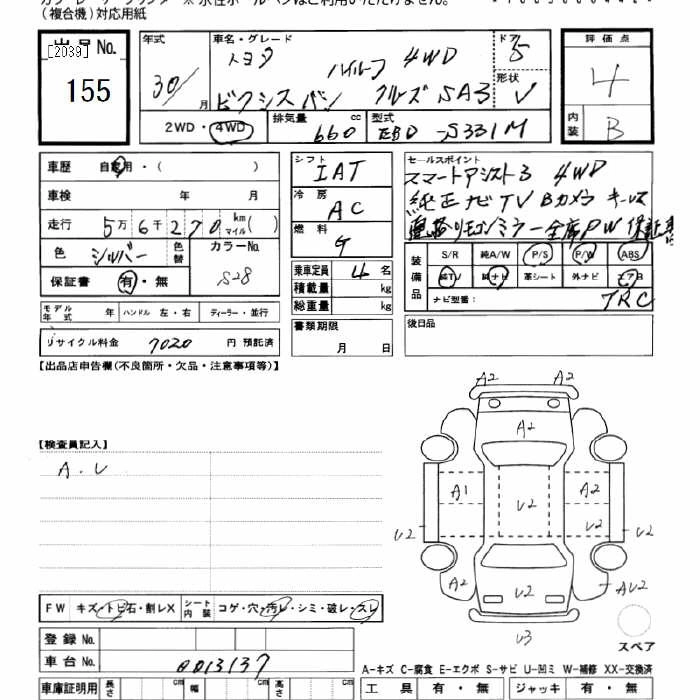 (複合機)対応用紙
出品No.
[2039]
155
年式
30/
月
車名・グレード
トヨタ
ハイルーフ 4WD
ピクシスバン クルーズ SAⅢ
ドア
5
形状
V
評価点
4
内装
B
2WD・4WD
排気量
660
cc
型式
EBD-S331M
車歴
自家用・( )
車検
年 月
走行
5万6千270
km
マイル( )
色
シルバー
色替
カラーNo.
S28
保証書
有・無
シフト
IAT
冷房
AC
燃料
G
乗車定員
4名
積載量
kg
総重量
kg
書類期限
月 日
セールスポイント
スマートアシスト3 4WD
純正ナビTV Bカメラ キーレス
電格リモコンミラー 全席PW
装備品
S/R 純A/W P/S P/W ABS
純TV 純ナビ 革シート 外ナビ エアB
ナビ型番:
TRC
後日品
モデル年式
年
ハンドル 左・右
ディーラー・並行
リサイクル料金
7020
円 預託済
【出品店申告欄(不良箇所・欠品・注意事項等)】
【検査員記入】
A.U
A2
A2
A2
A1
U2
A2
U2
U2
U2
A2
U2
AU2
U3
スペア
FW
キズ・トビ石・割レX
シート内装
コゲ・穴・汚レ・シミ・破レ・スレ
登録No.
車台No.
0013137
A-キズ C-腐食 E-エクボ S-サビ U-凹ミ W-補修 XX-交換済
車庫証明用
長さ
cm
幅
cm
高さ
cm
工具
有・無
ジャッキ
有・無